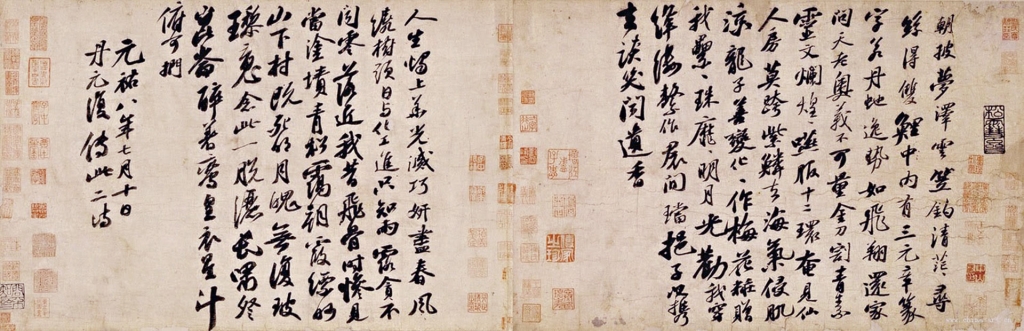 朝披夢澤雲笠釣清茫〻尋
絲得雙鯉中內有三元章篆
字若丹虵逸勢如飛翔還家
問天老奧義不可量金刀割青素
靈文爛煌〻嚥服十二環奄見仙
人房莫跨紫鱗去海氣侵肌
涼龍子善變化〻作梅花粧贈
我纍〻珠靡〻明月光勸我穿
絳縷繫作裙間璫挹子以攜
去談笑聞遺香
人生燭上花光滅巧妍盡春風
繞樹頭日與化工進只知雨露貪不
聞零落近我昔飛骨時慘見
當塗墳青松靄朝霞縹緲
山下村既死明月魄無復玻
瓈魂念此一脫灑長嘯登
崑崙醉著鸞皇衣星斗
俯可捫
元祐八年七月十日
丹元復傳此二詩